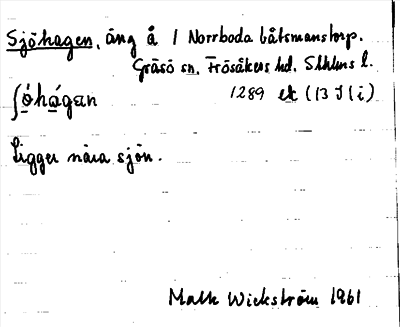 Sjöhagen, äng å 1 Norrboda båtsmanstorp.
Gräsö sn, Frösåkers hd, Sthlms l.
ʃóhàgan 1289 ek (13 I 1 i)
Ligger nära sjön.
MaLk Wickström 1961